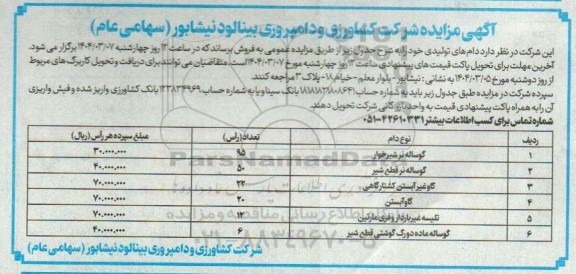 آگهی مزایده شرکت کشاورزی و دامپروری بینالود نیشابور (سهامی عام)
این شرکت در نظر دارد دام‌های تولیدی خود را به شرح جدول زیر از طریق مزایده عمومی به فروش برساند که در ساعت ۱۳ روز چهارشنبه ۱۴۰۴/۰۳/۰۷ برگزار می شود.
آخرین مهلت برای تحویل پاکت قیمت های پیشنهادی ساعت ۱۲ روز چهارشنبه مورخ ۱۴۰۴/۰۳/۰۷ است. متقاضیان می توانند برای دریافت و تحویل کاربرگ‌های مربوط
از روز دوشنبه مورخ ۱۴۰۴/۰۳/۰۵ به نشانی : نیشابور - بلوار معلم - خیام ۱۸ - پلاک ۳ مراجعه کنند.
سپرده شرکت در مزایده طبق جدول زیر باید به شماره حساب بانک سینا و یا به شماره حساب بانک کشاورزی واریز شده و فیش واریزی
آن را به همراه پاکت پیشنهادی قیمت به واحد بازرگانی شرکت تحویل دهند.
شماره تماس برای کسب اطلاعات بیشتر ۴۲۶۱۰۳۳۱-۰۵۱
ردیف نوع دام تعداد (راس) مبلغ سپرده هر راس (ریال)
۱ گوساله نر شیرخوار ۹۵ ۳۰.۰۰۰.۰۰۰
۲ گوساله نر قطع شیر ۵۰ ۴۰.۰۰۰.۰۰۰
۳ گاو غیر آبستن کشتارگاهی ۲۲ ۷۰.۰۰۰.۰۰۰
۴ گاو آبستن ۲۰ ۷۰.۰۰۰.۰۰۰
۵ تلیسه غیر باردار و فری مارتین ۱۲ ۷۰.۰۰۰.۰۰۰
۶ گوساله ماده دورگ گوشتی قطع شیر ۶ ۴۰.۰۰۰.۰۰۰
شرکت کشاورزی و دامپروری بینالود نیشابور (سهامی عام)